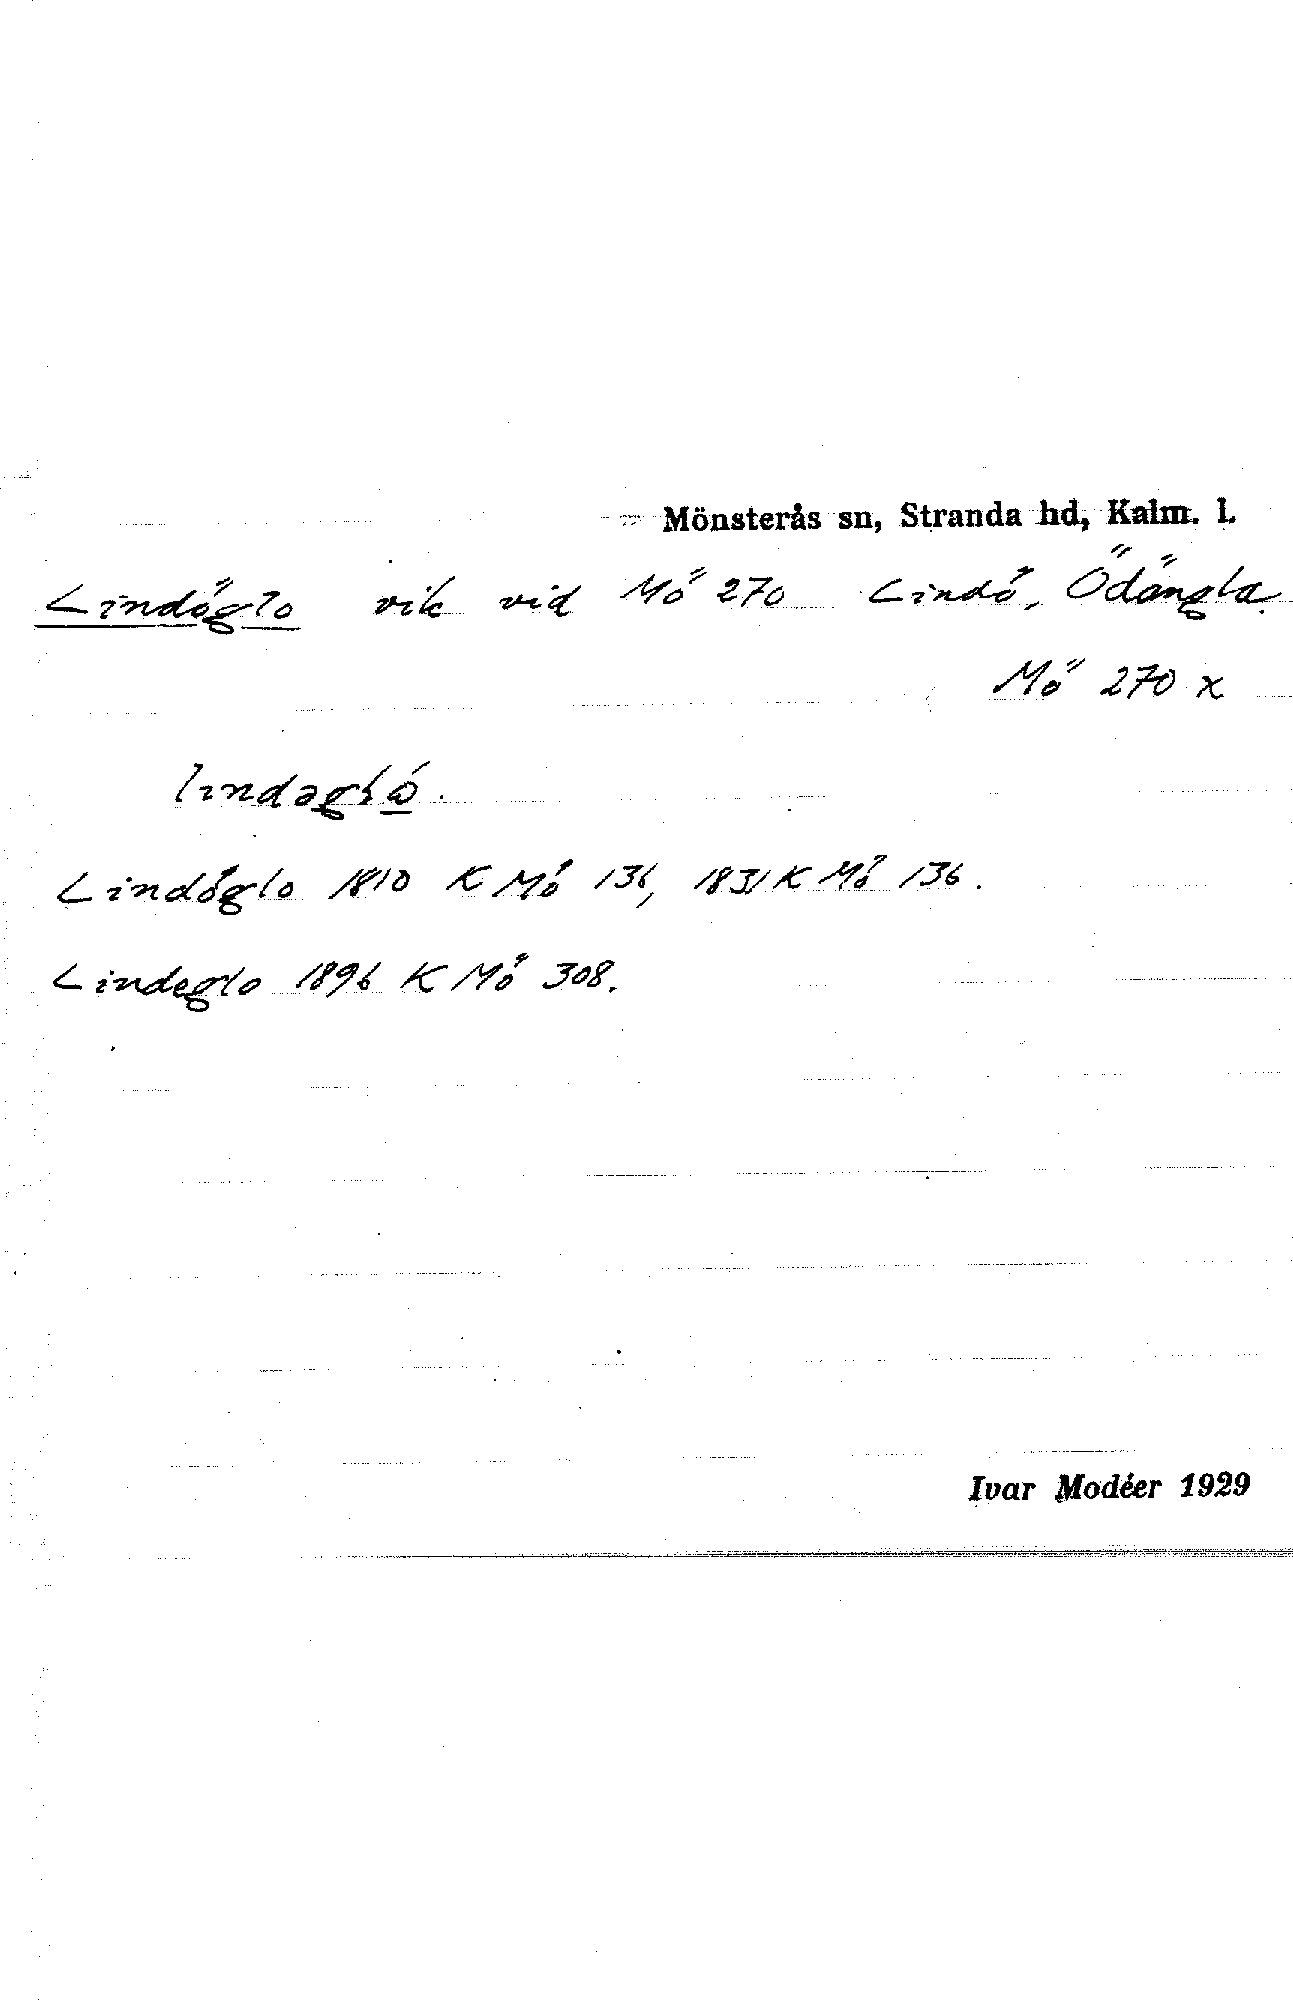 Mönsterås sn, Stranda hd, Kalm. l.
Lindöglo vik vid Mö 270 Lindö, Ödängla.
Mö 270 x
Lindöglo 1810 K Mö 136, 1831 K Mö 136.
Lindeglo 1896 K Mö 308.
Ivar Modéer 1929